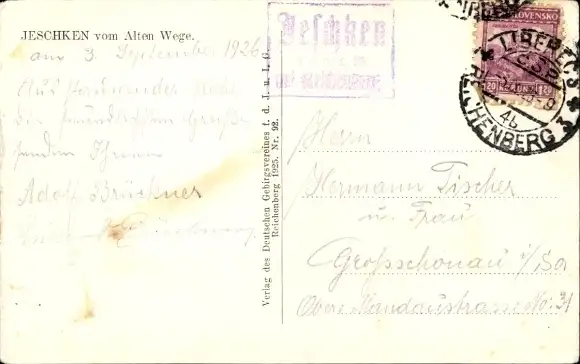 JESCHKEN vom Alten Wege.
am 3. September 1926
Aus
die freundlichsten Grüße
senden Ihnen
Adolf Brückner
Verlag des Deutschen Gebirgsvereines f. d. J. u. I. G.
Reichenberg 1925. Nr. 92.
Jeschken
LIBEREC
Č.S.R.
4b
REICHENBERG 3
120
120
Herrn
Hermann Tischer
u. Frau
Großschönau i/Sa
Obere Mandaustrasse No: 31